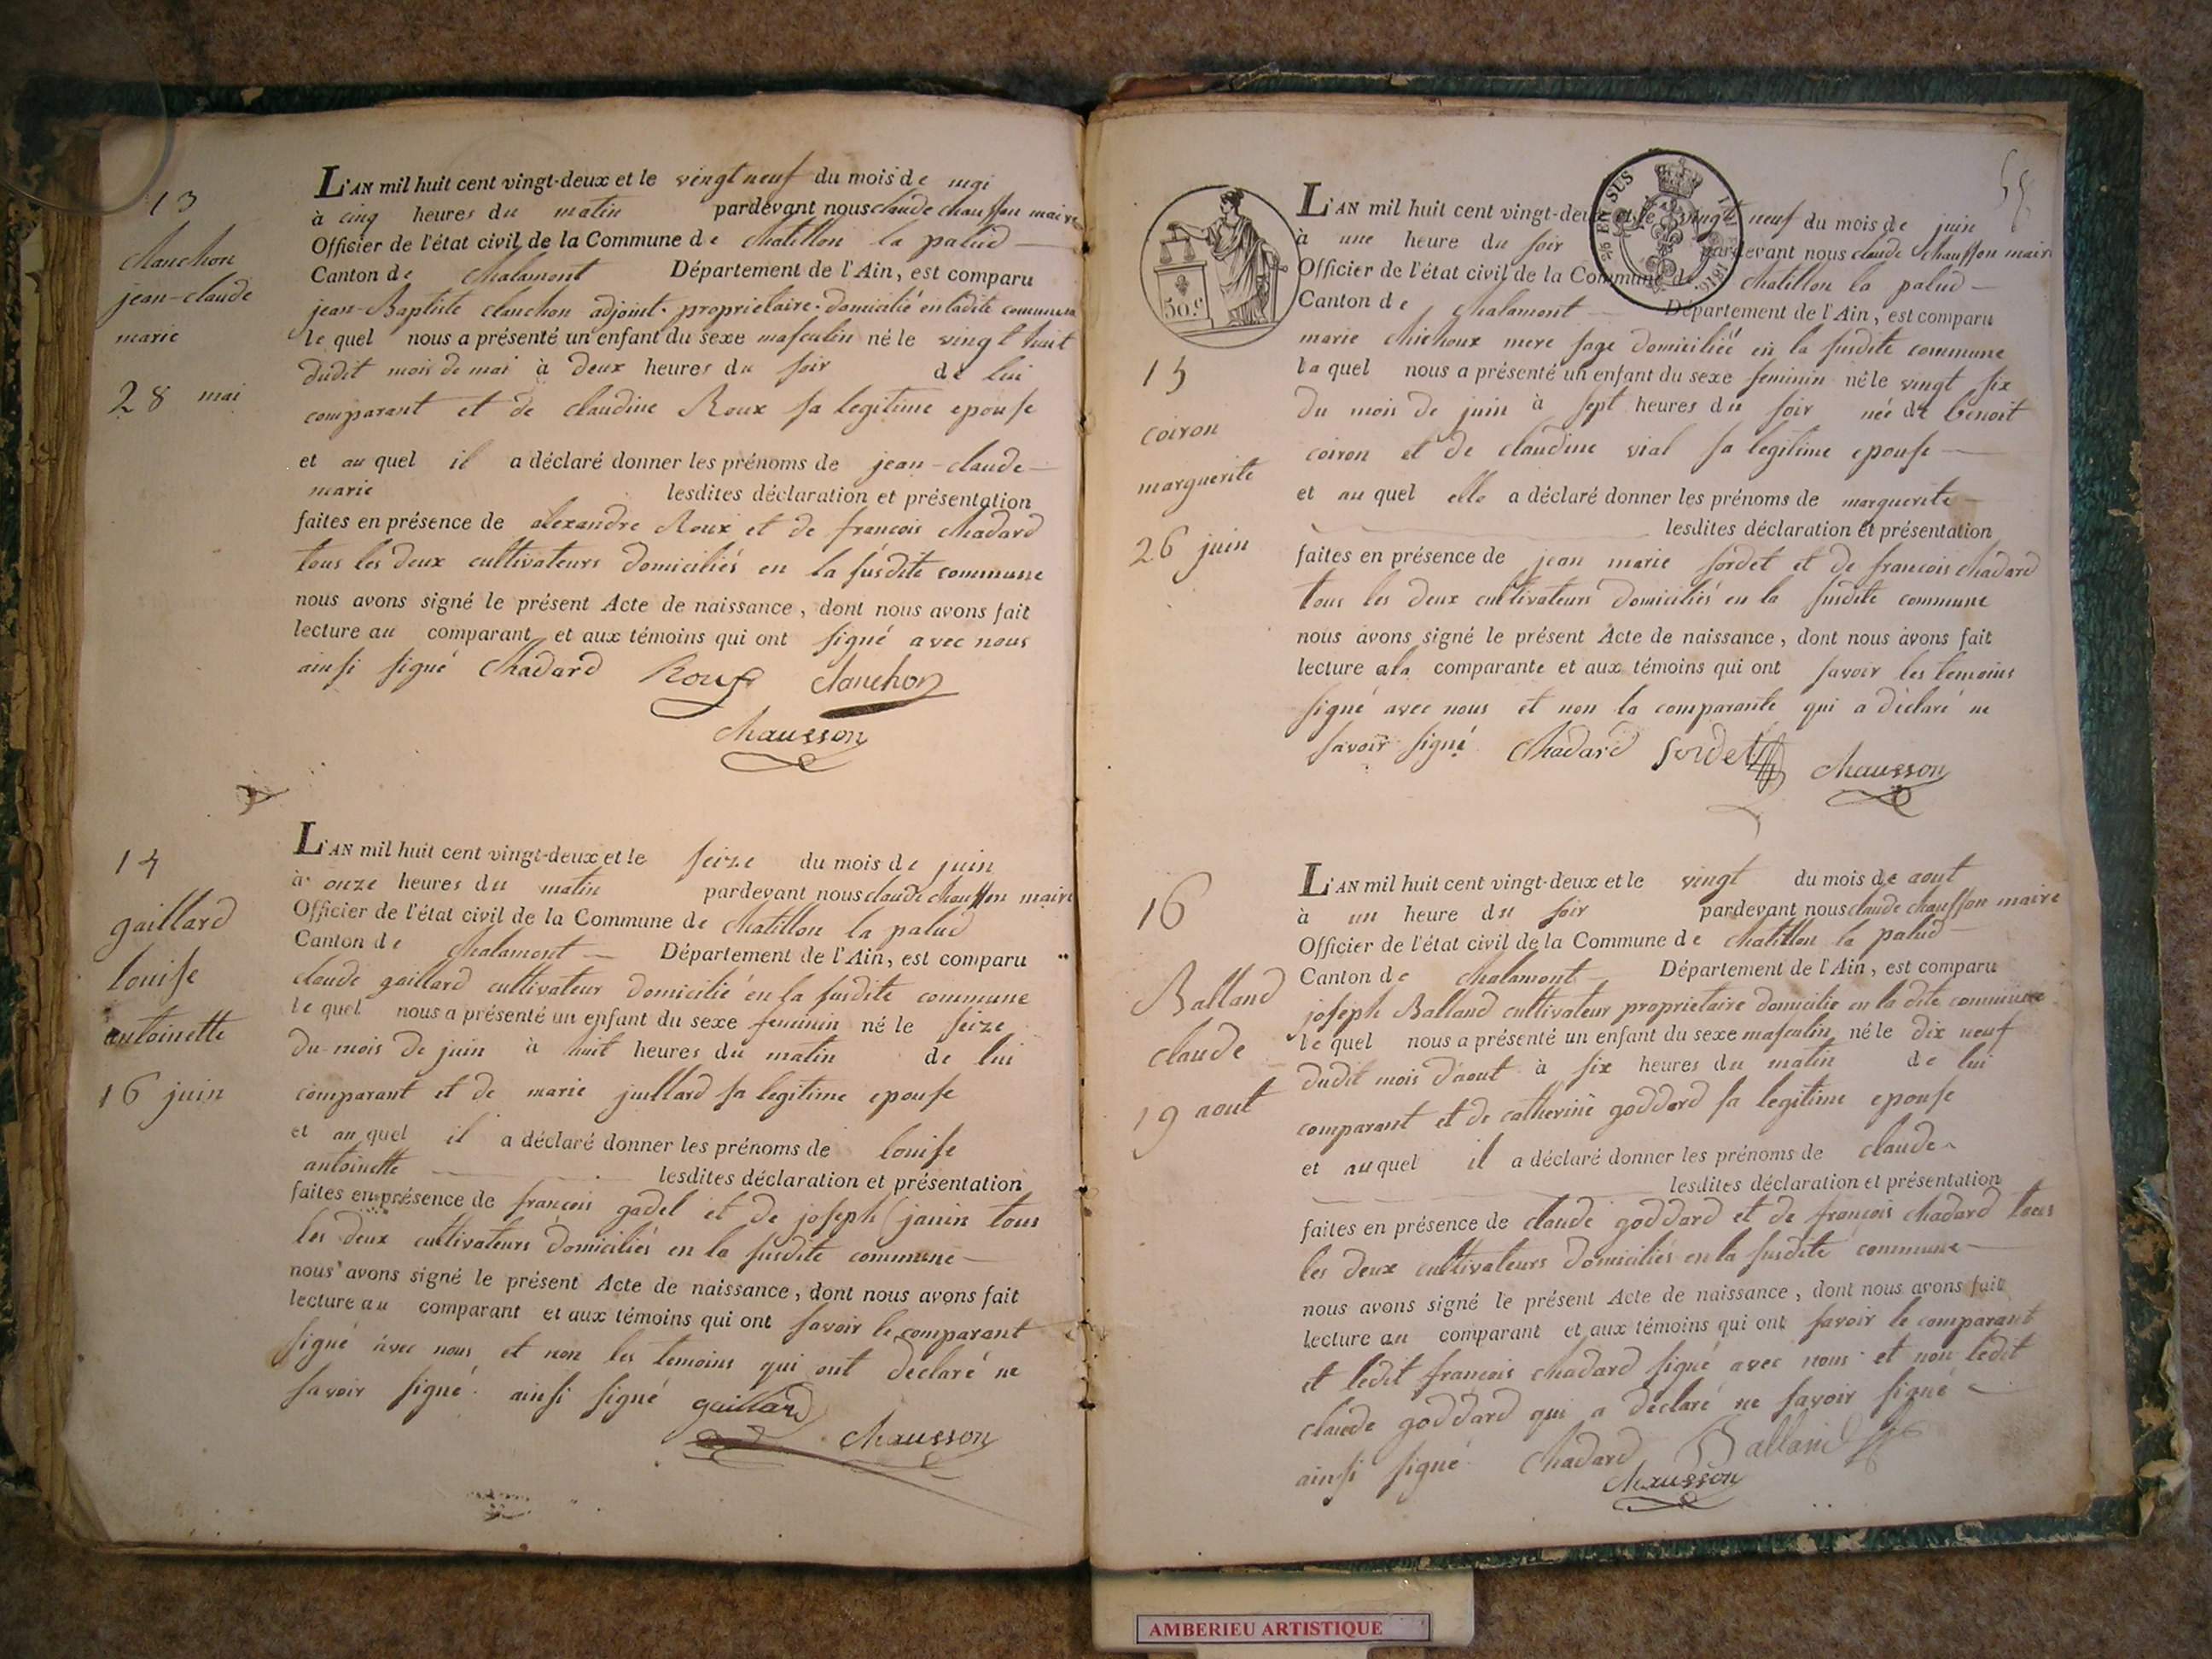 13
clanchon
jean-claude
marie
28 mai
L'AN mil huit cent vingt-deux et le vingt neuf du mois de mai
à cinq heures du matin pardevant nous claude chausson maire
Officier de l'état civil de la Commune de chatillon la palud
Canton de chalamont Département de l'Ain, est comparu
jean-Baptiste clanchon adjoint proprietaire domicilié en ladite commune
le quel nous a présenté un enfant du sexe masculin né le vingt huit
dudit mois de mai à deux heures du soir de lui
comparant et de claudine Roux sa legitime epouse
et au quel il a déclaré donner les prénoms de jean-claude
marie lesdites déclaration et présentation
faites en présence de alexandre Roux et de francois chadard
tous les deux cultivateurs domiciliés en la susdite commune
nous avons signé le présent Acte de naissance, dont nous avons fait
lecture au comparant et aux témoins qui ont signé avec nous
ainsi signé chadard Roux clanchon
chausson
14
gaillard
louise
antoinette
16 juin
L'AN mil huit cent vingt-deux et le seize du mois de juin
à onze heures du matin pardevant nous claude chausson maire
Officier de l'état civil de la Commune de chatillon la palud
Canton de chalamont Département de l'Ain, est comparu
claude gaillard cultivateur domicilié en la susdite commune
le quel nous a présenté un enfant du sexe feminin né le seize
du mois de juin à huit heures du matin de lui
comparant et de marie juillard sa legitime epouse
et au quel il a déclaré donner les prénoms de louise
antoinette lesdites déclaration et présentation
faites en présence de francois gadel et de joseph janin tous
les deux cultivateurs domiciliés en la susdite commune
nous avons signé le présent Acte de naissance, dont nous avons fait
lecture au comparant et aux témoins qui ont savoir le comparant
signé avec nous et non les temoins qui ont declaré ne
savoir signé ainsi signé gaillard
chausson
50.c
25 EN SUS
1816
15
coiron
marguerite
26 juin
L'AN mil huit cent vingt-deux et le vingt neuf du mois de juin
à une heure du soir pardevant nous claude chausson maire
Officier de l'état civil de la Commune de chatillon la palud
Canton de chalamont Département de l'Ain, est comparu
marie chichoux mere sage domiciliée en la susdite commune
la quel nous a présenté un enfant du sexe feminin né le vingt six
du mois de juin à sept heures du soir née de benoit
coiron et de claudine vial sa legitime epouse
et au quel elle a déclaré donner les prénoms de marguerite
lesdites déclaration et présentation
faites en présence de jean marie sordet et de francois chadard
tous les deux cultivateurs domiciliés en la susdite commune
nous avons signé le présent Acte de naissance, dont nous avons fait
lecture a la comparante et aux témoins qui ont savoir les temoins
signé avec nous et non la comparante qui a déclaré ne
savoir signé chadard Sordet chausson
16
Balland
claude
19 aout
L'AN mil huit cent vingt-deux et le vingt du mois de aout
à un heure du soir pardevant nous claude chausson maire
Officier de l'état civil de la Commune de chatillon la palud
Canton de chalamont Département de l'Ain, est comparu
joseph Balland cultivateur proprietaire domicilié en la dite commune
le quel nous a présenté un enfant du sexe masculin né le dix neuf
dudit mois d'aout à six heures du matin de lui
comparant et de catherine goddard sa legitime epouse
et au quel il a déclaré donner les prénoms de claude
lesdites déclaration et présentation
faites en présence de claude goddard et de francois chadard tous
les deux cultivateurs domiciliés en la susdite commune
nous avons signé le présent Acte de naissance, dont nous avons fait
lecture au comparant et aux témoins qui ont savoir le comparant
et ledit francois chadard signé avec nous et non ledit
claude goddard qui a déclaré ne savoir signé
ainsi signé chadard Balland
chausson
AMBERIEU ARTISTIQUE